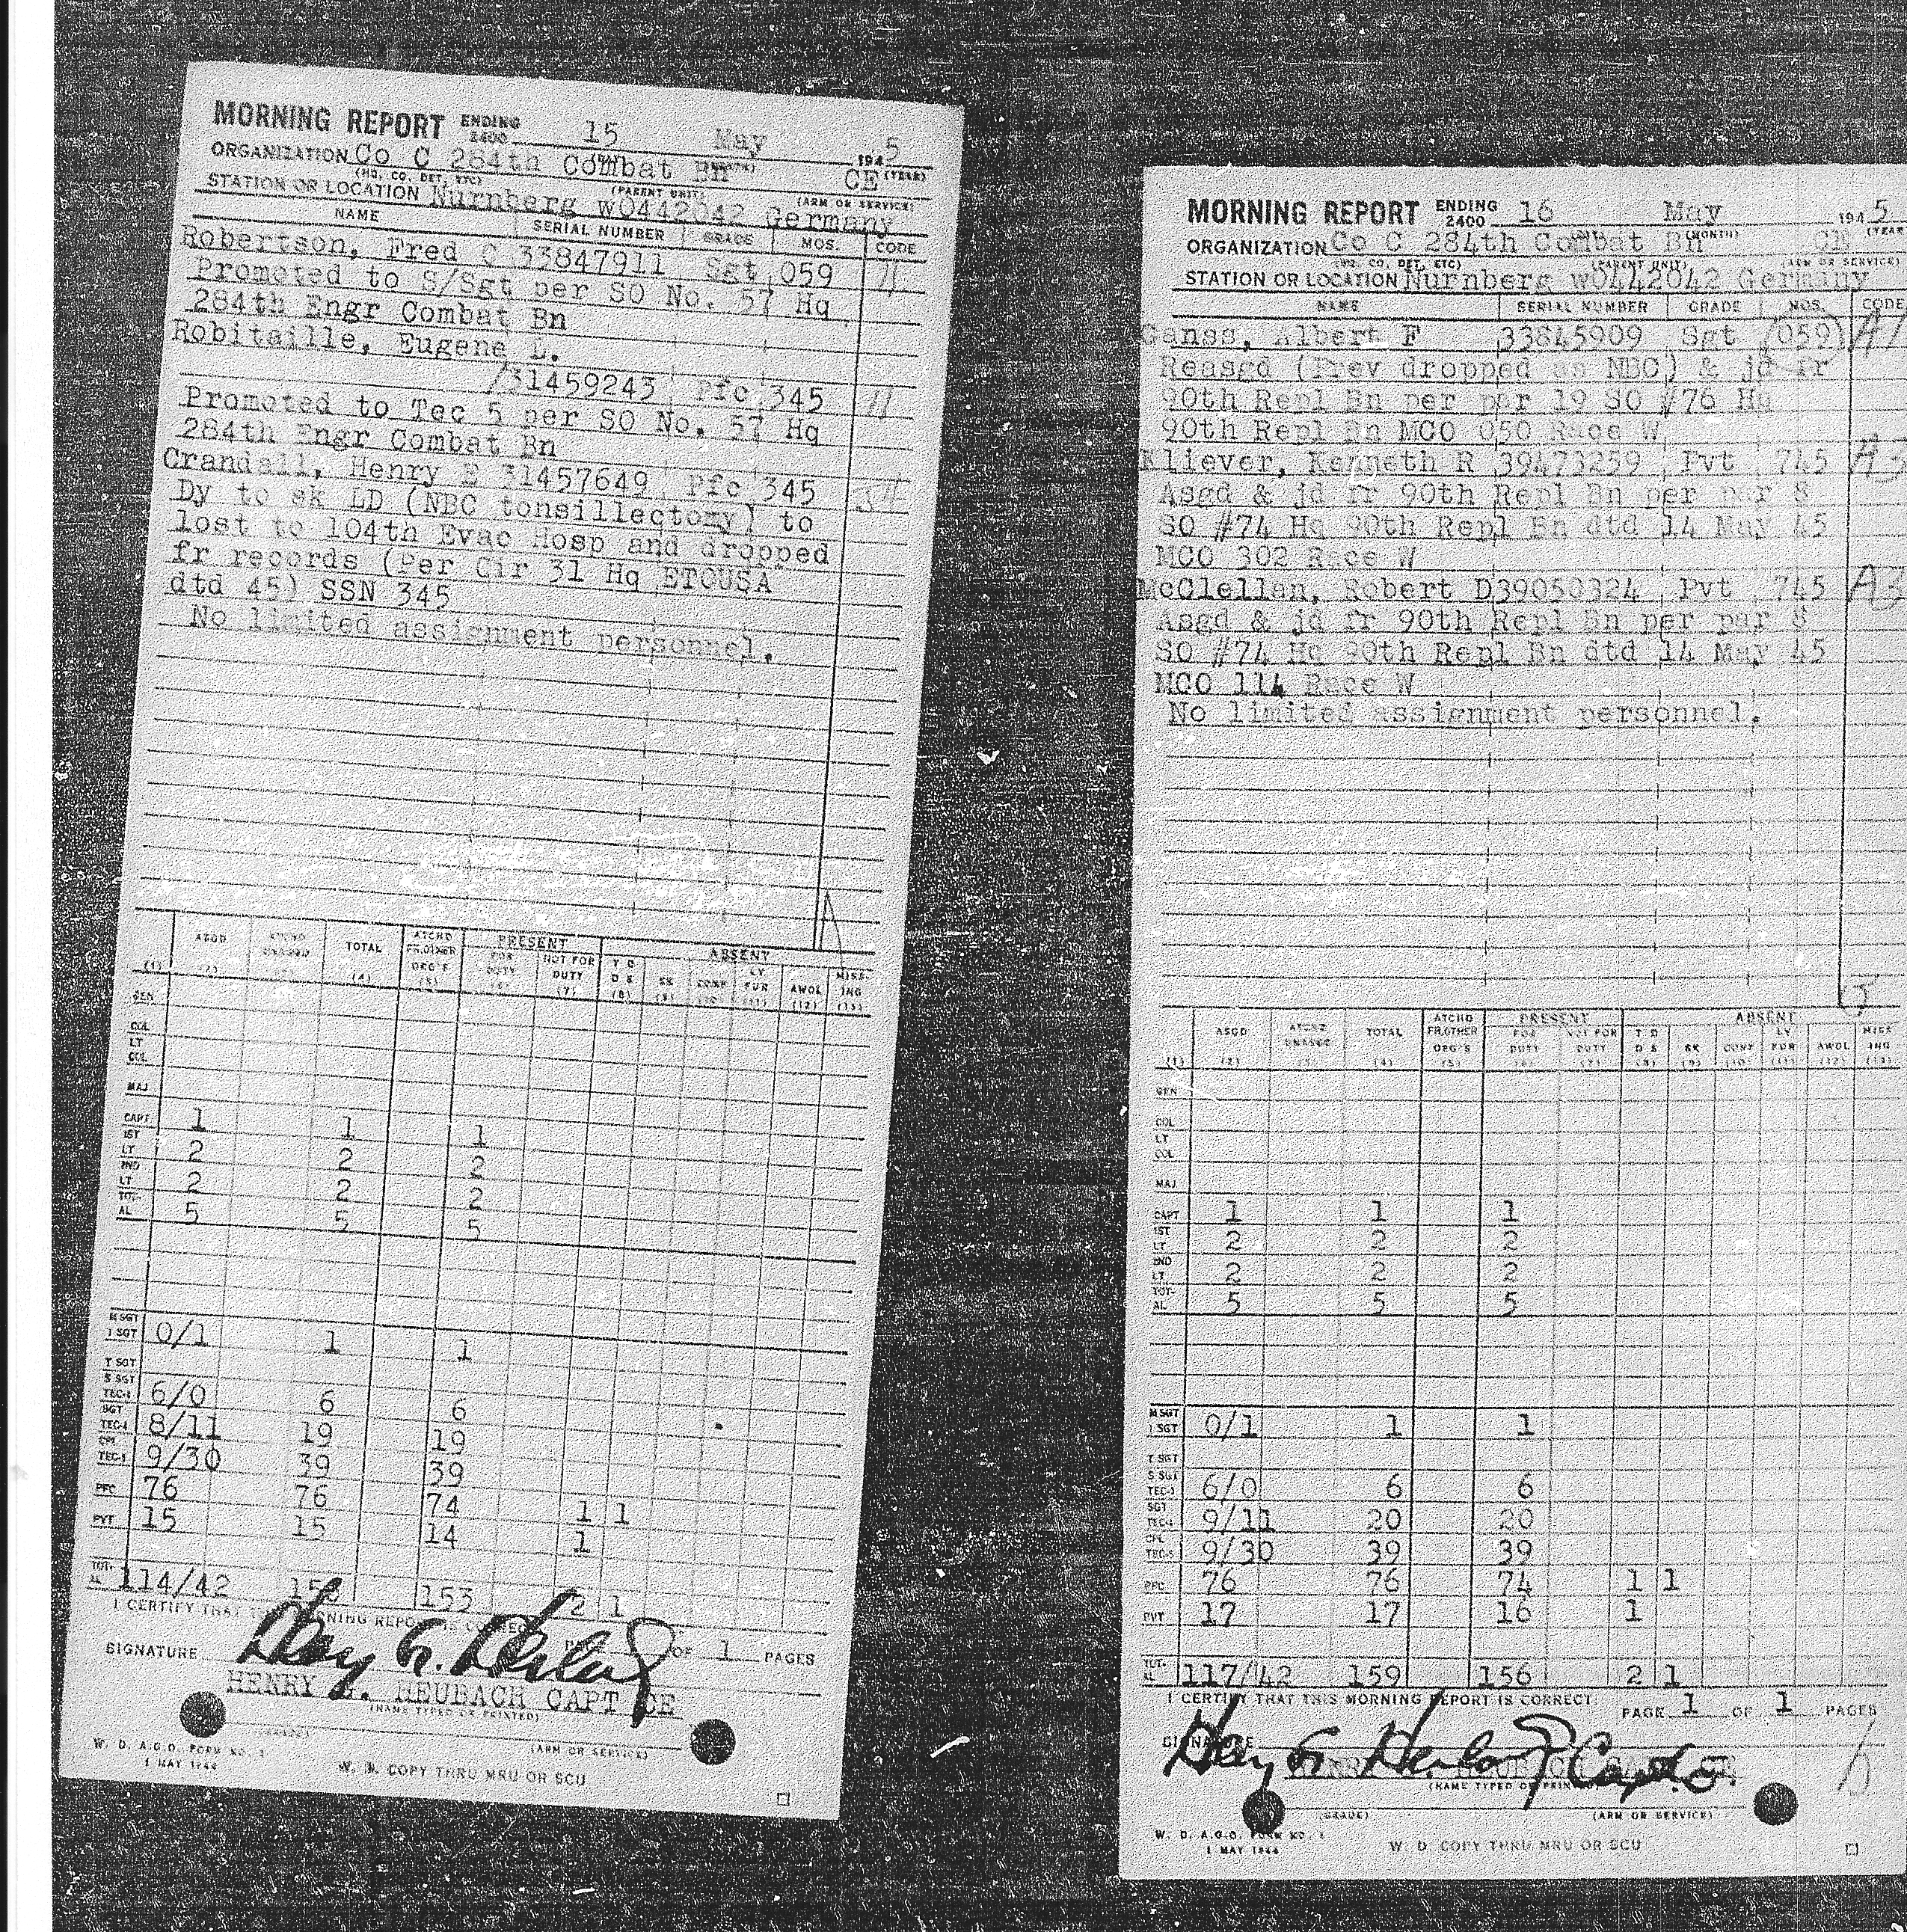 MORNING REPORT ENDING 2400 15 May 1945
ORGANIZATION Co C 284th Combat Bn CE
(HQ. CO. DET. ETC) (PARENT UNIT) (ARM OR SERVICE)
STATION OR LOCATION Nurnberg wO442042 Germany
NAME SERIAL NUMBER GRADE MOS. CODE
Robertson, Fred C 33847911 Sgt 059
Promoted to S/Sgt per SO No. 57 Hq
284th Engr Combat Bn
Robitaille, Eugene L.
/31459243 Pfc 345
Promoted to Tec 5 per SO No. 57 Hq
284th Engr Combat Bn
Crandall, Henry E 31457649 Pfc 345
Dy to sk LD (NBC tonsillectomy) to
lost to 104th Evac Hosp and dropped
fr records (Per Cir 31 Hq ETOUSA
dtd 45) SSN 345
No limited assignment personnel.
ASGD ATCHD UNASGD TOTAL ATCHD FR.OTHER ORG'S PRESENT FOR DUTY NOT FOR DUTY ABSENT T D D S SK CONF LV FUR AWOL MISSING
(1) (2) (4) (5) (6) (7) (8) (9) (10) (11) (12) (13)
GEN
COL
LT COL
MAJ
CAPT 1 1 1
1ST LT 2 2 2
2ND LT 2 2 2
TOTAL 5 5 5
M SGT
1 SGT 0/1 1 1
T SGT
S SGT
TEC-3 6/0 6 6
SGT
TEC-4 8/11 19 19
CPL
TEC-5 9/30 39 39
PFC 76 76 74 1 1
PVT 15 15 14 1
TOTAL 114/42 153 2 1
I CERTIFY THAT THIS MORNING REPORT IS CORRECT
PAGE OF 1 PAGES
SIGNATURE
HENRY G. HEUBACH CAPT CE
(NAME TYPED OR PRINTED)
(GRADE) (ARM OR SERVICE)
W. D. A.G.O. FORM NO. 1
1 MAY 1944
W. D. COPY THRU MRU OR SCU
MORNING REPORT ENDING 2400 16 May 1945
(MONTH) (YEAR)
ORGANIZATION Co C 284th Combat Bn CE
(HQ. CO. DET. ETC) (PARENT UNIT) (ARM OR SERVICE)
STATION OR LOCATION Nurnberg wO442042 Germany
NAME SERIAL NUMBER GRADE MOS. CODE
Ganss, Albert F 33845909 Sgt (059) A1
Reasgd (Prev dropped as NBC) & jd fr
90th Repl Bn per par 19 SO #76 Hq
90th Repl Bn MCO 050 Race W
Kliever, Kenneth R 39473259 Pvt 745 A3
Asgd & jd fr 90th Repl Bn per par 8
SO #74 Hq 90th Repl Bn dtd 14 May 45
MCO 302 Race W
McClellan, Robert D39050324 Pvt 745 A3
Asgd & jd fr 90th Repl Bn per par 8
SO #74 Hq 90th Repl Bn dtd 14 May 45
MCO 114 Race W
No limited assignment personnel.
ASGD ATCHD UNASGD TOTAL ATCHD FR.OTHER ORG'S PRESENT FOR DUTY NOT FOR DUTY ABSENT T D D S SK CONF LV FUR AWOL MISSING
(1) (2) (3) (4) (5) (6) (7) (8) (9) (10) (11) (12) (13)
GEN
COL
LT COL
MAJ
CAPT 1 1 1
1ST LT 2 2 2
2ND LT 2 2 2
TOTAL 5 5 5
M SGT
1 SGT 0/1 1 1
T SGT
S SGT
TEC-3 6/0 6 6
SGT
TEC-4 9/11 20 20
CPL
TEC-5 9/30 39 39
PFC 76 76 74 1 1
PVT 17 17 16 1
TOTAL 117/42 159 156 2 1
I CERTIFY THAT THIS MORNING REPORT IS CORRECT.
PAGE 1 OF 1 PAGES
SIGNATURE
(NAME TYPED OR PRINTED)
(GRADE) (ARM OR SERVICE)
W. D. A.G.O. FORM NO. 1
1 MAY 1944
W. D. COPY THRU MRU OR SCU